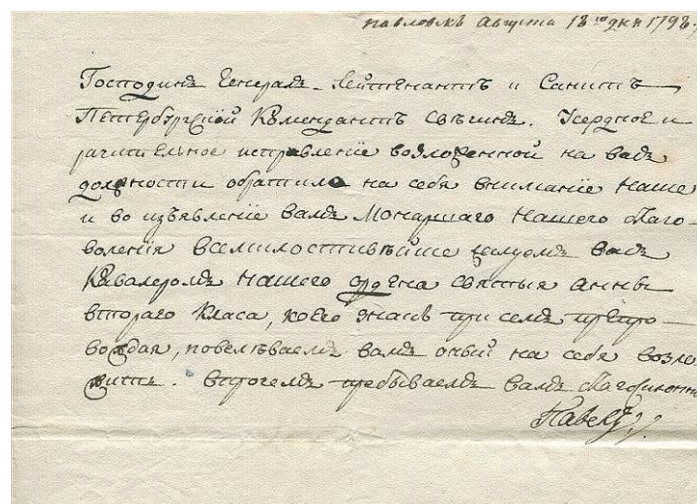 Павловскъ Августа 18го дни 1798.г.
Господинъ Генералъ-Лейтенантъ и Санктъ
Петербургской Комендантъ Свѣчинъ. Усердное и
рачительное исправленіе возложенной на васъ
должности обратило на себя вниманіе наше
и во изъявленіе вамъ Монаршаго нашего благо-
воленія всемилостивѣйше жалуемъ васъ
Кавалеромъ нашего ордена святыя Анны
втораго класа, коего знакъ при семъ препро-
вождая, повелѣваемъ вамъ оный на себя возло
жить. впрочемъ пребываемъ вамъ благосклонны
Павелъ